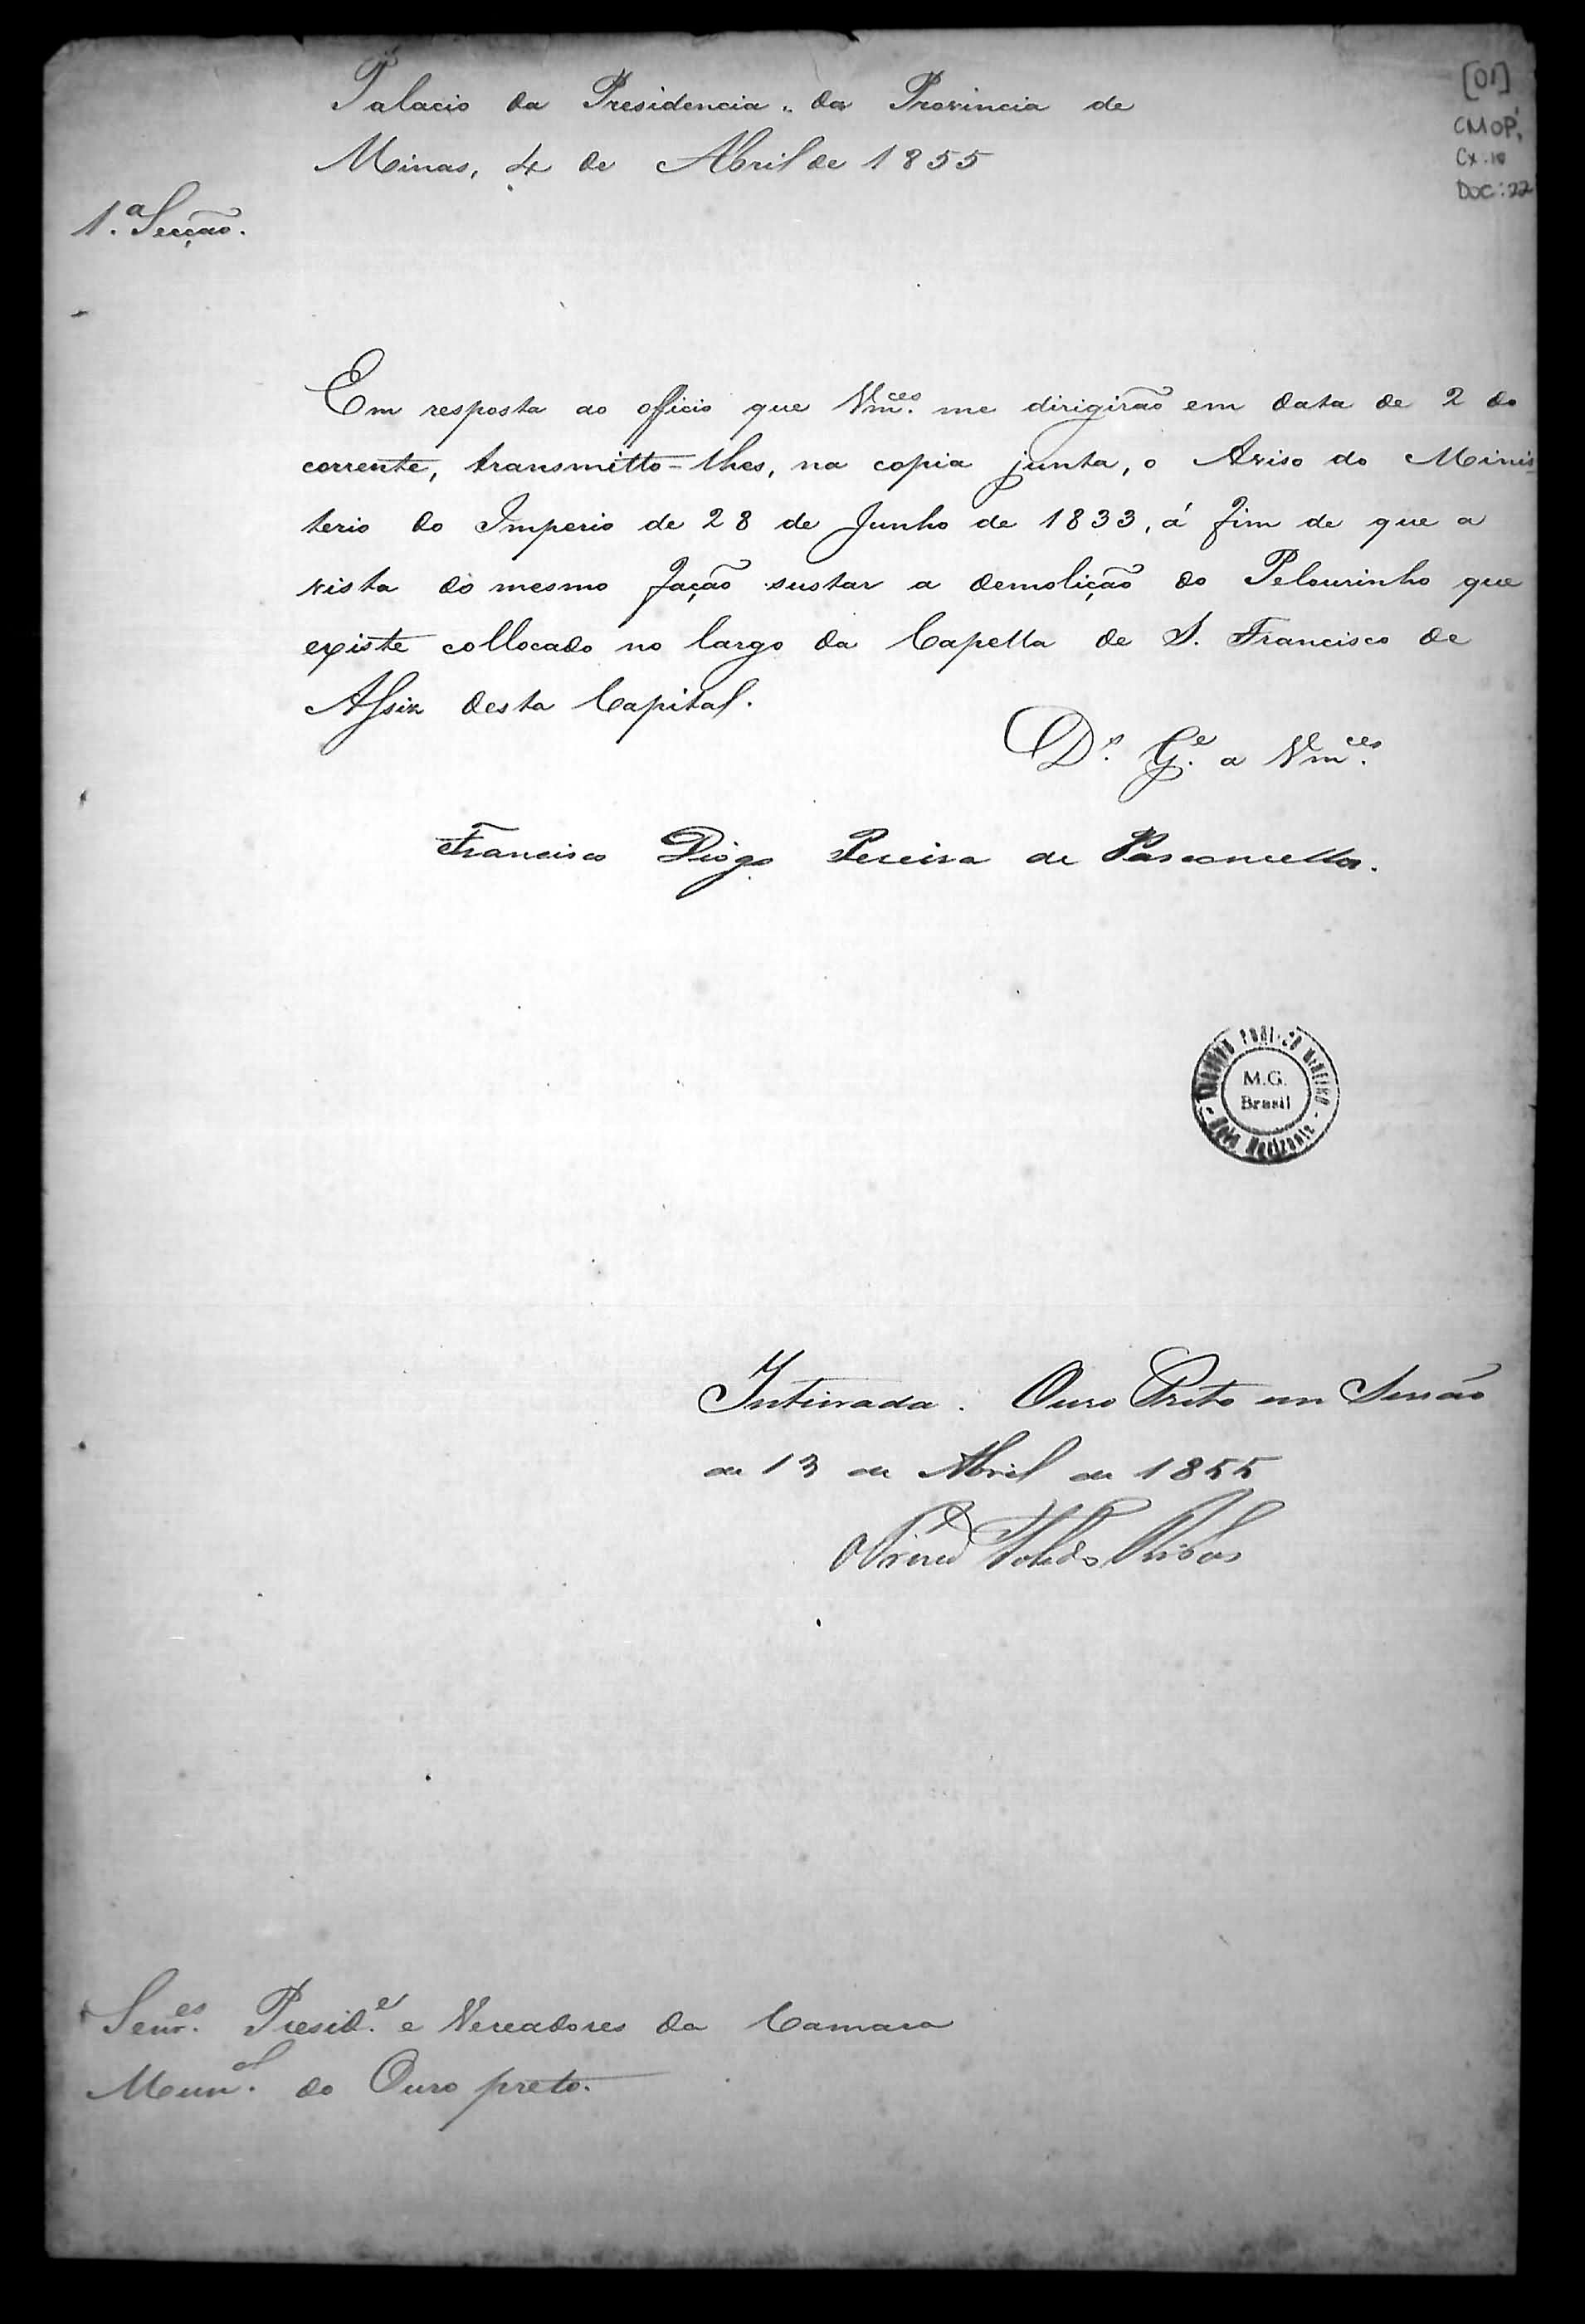 Palacio da Presidencia da Provincia de
Minas, 4 de Abril de 1855
[01]
CMOP,
Cx. 10
DOC: 22
1.ª Secção.
Em resposta ao officio que Vm.ces me dirigirão em data de 2 do
corrente, transmitto-lhes, na copia junta, o Aviso do Minis-
terio do Imperio de 28 de Junho de 1833, á fim de que a
vista do mesmo fação sustar a demolição do Pelourinho que
existe collocado no largo da Capella de S. Francisco de
Assiz desta Capital.
D.s G.e a Vm.ces
Francisco Diogo Pereira de Vasconcellos.
ARCHIVO PUBLICO MINEIRO
M.G.
Brasil
Belo Horizonte
Inteirada. Ouro Preto em Sessão
de 13 de Abril de 1855
Toledo Ribas
Senr.es Presid.e e Vereadores da Camara
Mun.al do Ouro preto.